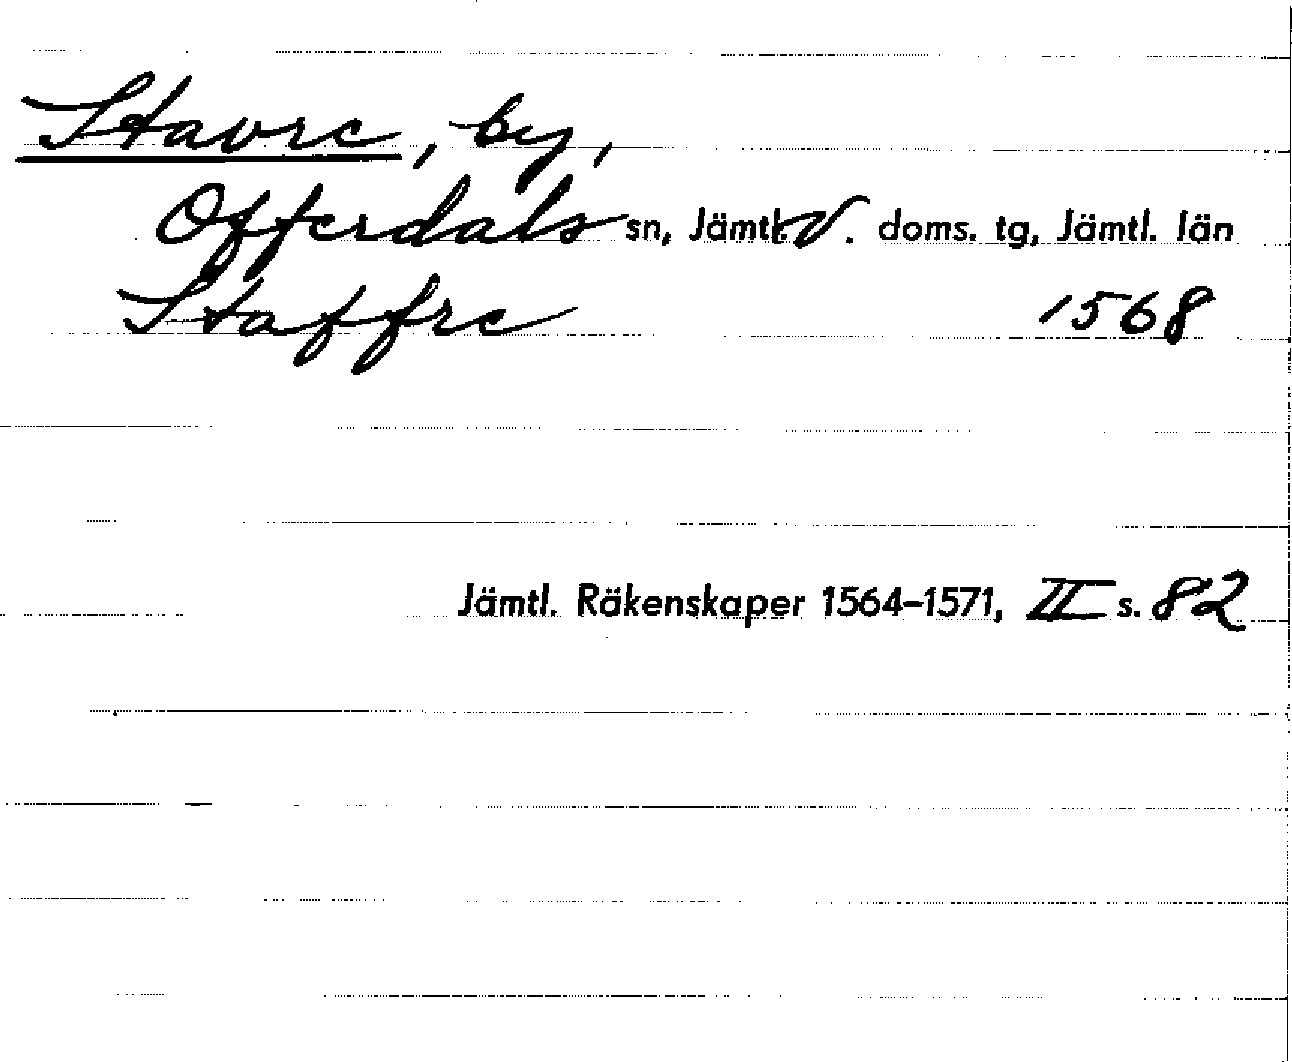 Stavre, by,
Offerdals sn, Jämtl. V. doms. tg, Jämtl. län
Staffre 1568
Jämtl. Räkenskaper 1564–1571, II s. 82